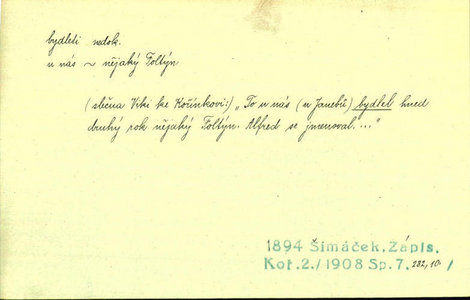 bydleti nedok.
u nás ~ nějaký Foltýn
(slečna Viki ke Kořínkovi:) „To u nás (u Janebů) bydlel hned
druhý rok nějaký Foltýn. Alfred se jmenoval. ..."
1894 Šimáček. Zápis.
Koř. 2./1908 Sp. 7. 282, 10 /